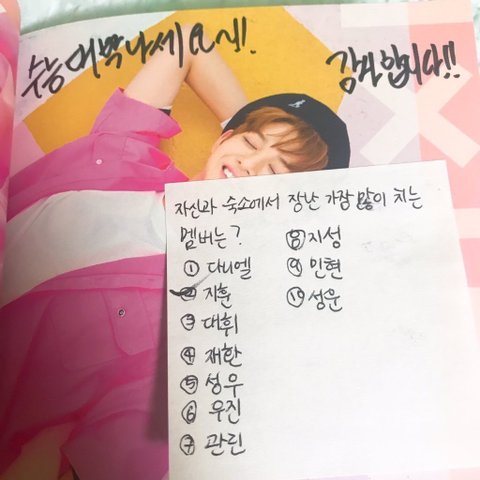 수능 대박나세요~!!
감사합니다!!
자신과 숙소에서 장난 가장 많이 치는
멤버는?
① 다니엘
② 지훈
③ 대휘
④ 재환
⑤ 성우
⑥ 우진
⑦ 관린
⑧ 지성
⑨ 민현
⑩ 성운